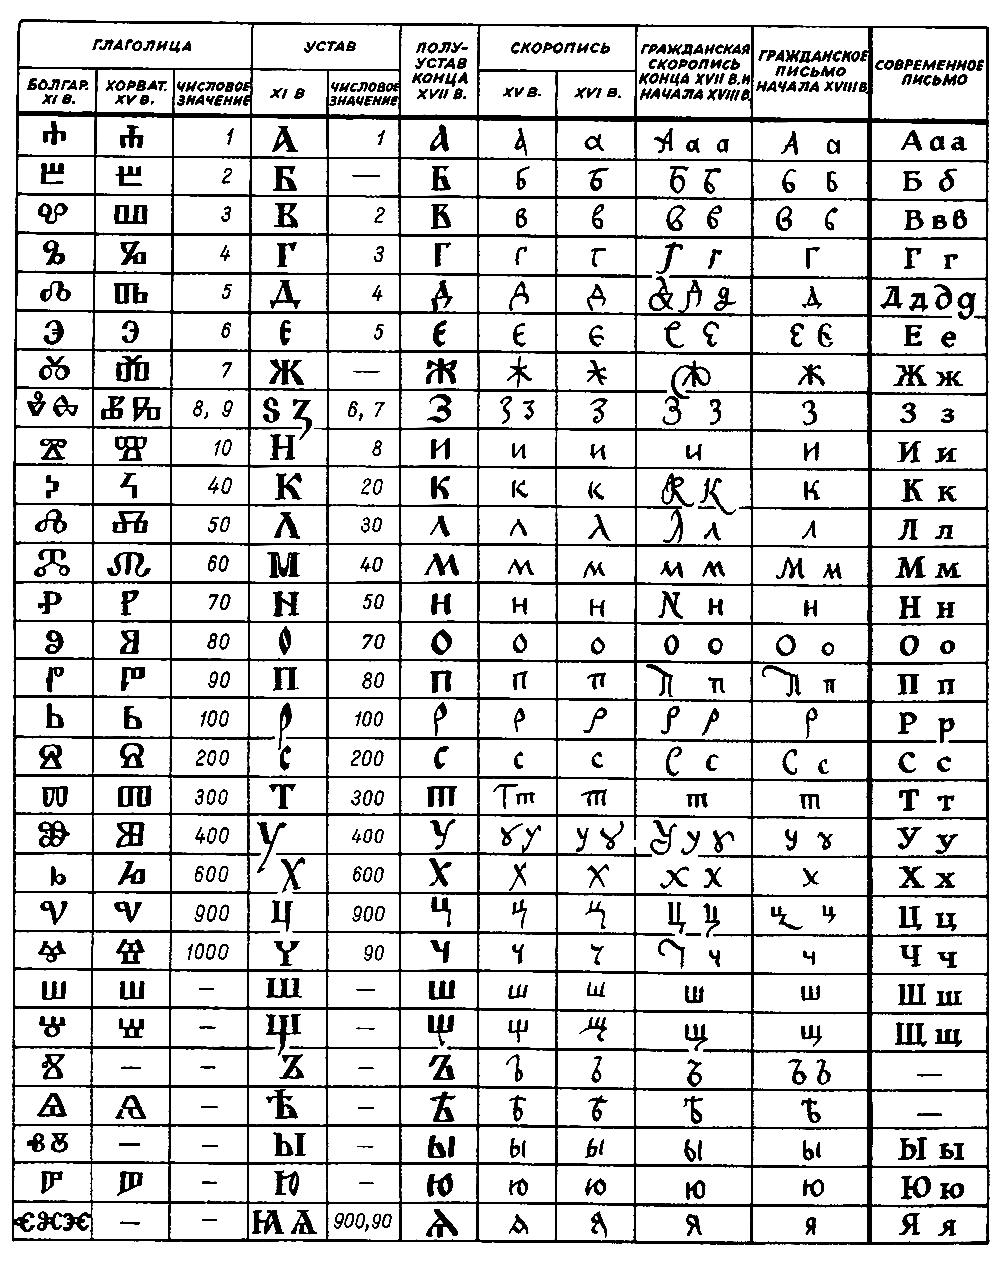 ГЛАГОЛИЦА УСТАВ ПОЛУ-УСТАВ КОНЦА XVII В. СКОРОПИСЬ ГРАЖДАНСКАЯ СКОРОПИСЬ КОНЦА XVII В. И НАЧАЛА XVIII В. ГРАЖДАНСКОЕ ПИСЬМО НАЧАЛА XVIII В. СОВРЕМЕННОЕ ПИСЬМО
БОЛГАР. XI В. ХОРВАТ. XV В. ЧИСЛОВОЕ ЗНАЧЕНИЕ XI В ЧИСЛОВОЕ ЗНАЧЕНИЕ XV В. XVI В.
Ⰰ Ⰰ 1 А 1 А а а А а а А а А а а
Ⰱ Ⰱ 2 Б — Б б б Б б б Б Б б
Ⰲ Ⰲ 3 В 2 В в в в в В в В в в
Ⰳ Ⰳ 4 Г 3 Г г г Г г Г Г г
Ⰴ Ⰴ 5 Д 4 Д д д Д Д д Д Д д д д
Ⰵ Ⰵ 6 Є 5 Є є є Є є Є є Е е
Ⰶ Ⰶ 7 Ж — Ж ж ж ж ж Ж ж
Ⰷ Ⰸ Ⰷ Ⰸ 8, 9 Ѕ З 6, 7 З З з З З З З З з
Ⰻ Ⰻ 10 Н 8 И и и и И И и
Ⰽ Ⰽ 40 К 20 К к к К К К К к
Ⰾ Ⰾ 50 Л 30 Л л л Л л л Л л
Ⰿ Ⰿ 60 М 40 М м м м м М м М м
Ⱀ Ⱀ 70 N 50 Н н н N н н Н н
Ⱁ Ⱁ 80 О 70 О о о О о О о О о
Ⱂ Ⱂ 90 П 80 П п п П п П п П п
Ⱃ Ⱃ 100 Р 100 Р р р р р р Р р
Ⱄ Ⱄ 200 С 200 С с с С с С с С с
Ⱅ Ⱅ 300 Т 300 Т Т т т т т Т т
Ⱆ Ⱆ 400 У 400 У ꙋ у у ꙋ У у ꙋ у ꙋ У у
Ⱈ Ⱈ 600 Х 600 Х х х х х х Х х
Ⱌ Ⱌ 900 Ц 900 Ц ц ц Ц ц ц ц Ц ц
Ⱍ Ⱍ 1000 Ч 90 Ч ч ч Ч ч ч Ч ч
Ⱎ Ⱎ — Ш — Ш ш ш ш ш Ш ш
Ⱋ Ⱋ — Щ — Щ щ щ щ щ Щ щ
Ⱏ — — Ъ — Ъ ъ ъ ъ Ъ ъ —
Ⱑ Ⱑ — Ѣ — Ѣ ѣ ѣ ѣ ѣ —
ⰂⰟ — — Ы — Ы ы ы ы ы Ы ы
Ⱓ Ⱓ — Ю — Ю ю ю ю ю Ю ю
— — Ѩ Ѧ 900,90 Ѧ ѧ я я я Я я